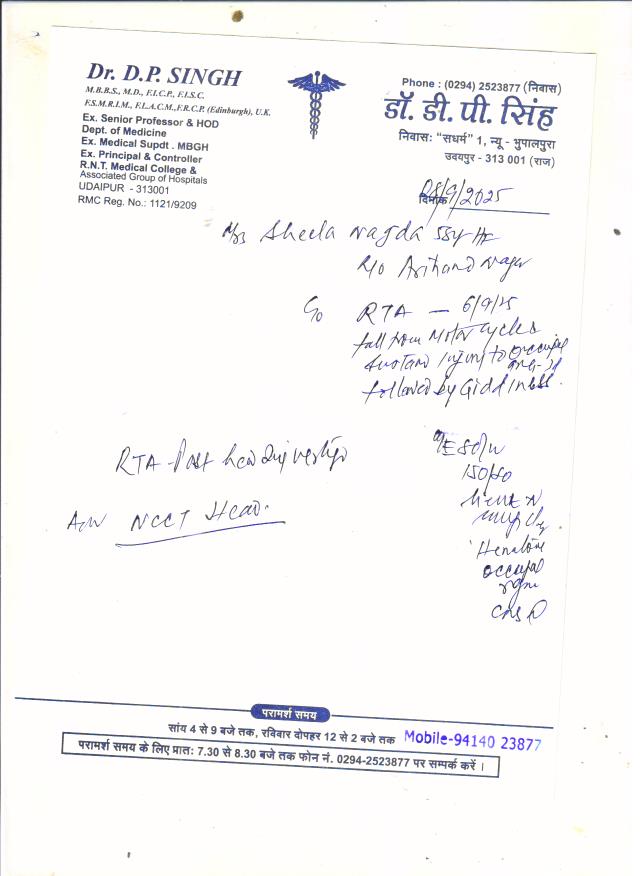 Dr. D.P. SINGH
M.B.B.S., M.D., F.I.C.P., F.I.S.C.
F.S.M.R.I.M., F.I.A.C.M.,F.R.C.P. (Edinburgh), U.K.
Ex. Senior Professor & HOD
Dept. of Medicine
Ex. Medical Supdt . MBGH
Ex. Principal & Controller
R.N.T. Medical College &
Associated Group of Hospitals
UDAIPUR - 313001
RMC Reg. No.: 1121/9209
Phone : (0294) 2523877 (निवास)
डॉ. डी. पी. सिंह
निवासः "सधर्म" 1, न्यू - भुपालपुरा
उदयपुर - 313 001 (राज)
दिनांक 08/9/2025
Mrs Sheela Nagda 55y
R/o Arihand Nagar
C/o RTA — 6/9/25
fall from Motor Cycles
Sustain injury to occupal
followed by Giddiness.
RTA - Post head inj vertigo
Adv NCCT Head.
O/E 80/m
150/80
Hematome
occupal
CNS
परामर्श समय
सांय 4 से 9 बजे तक, रविवार दोपहर 12 से 2 बजे तक Mobile-94140 23877
परामर्श समय के लिए प्रातः 7.30 से 8.30 बजे तक फोन नं. 0294-2523877 पर सम्पर्क करें ।